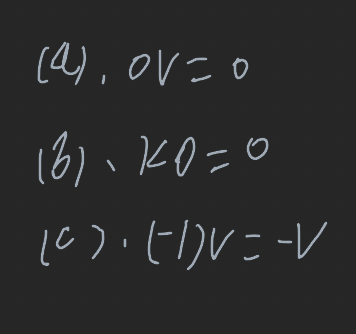 (a). 0V = 0
(b)、K0 = 0
(c). (-1)V = -V